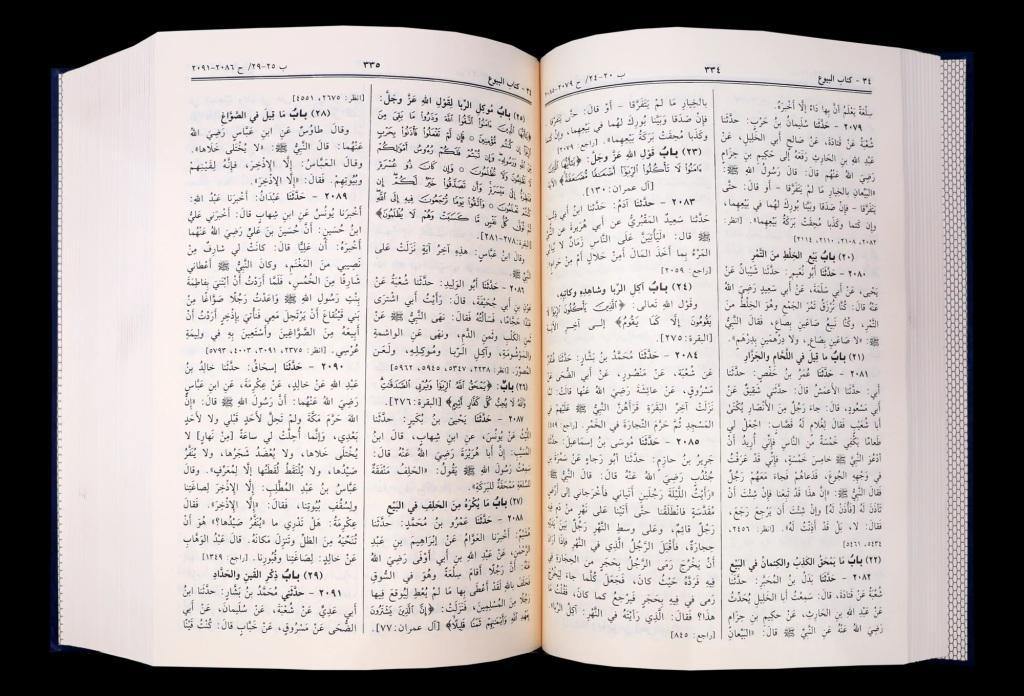 ٣٤ - كتاب البيوع
٣٣٤
ب ٢٠-٢٤/ ح ٢٠٧٩-٢٠٨٥
سِلْعَةً يَعْلَمُ أَنَّ بِهَا دَاءً إِلَّا أَخْبَرَهُ.
٢٠٧٩ - حَدَّثَنَا سُلَيْمَانُ بْنُ حَرْبٍ: حَدَّثَنَا
شُعْبَةُ عَنْ قَتَادَةَ، عَنْ صَالِحٍ أَبِي الْخَلِيلِ، عَنْ
عَبْدِ اللهِ بْنِ الْحَارِثِ رَفَعَهُ إِلَى حَكِيمِ بْنِ حِزَامٍ
رَضِيَ اللهُ عَنْهُ قَالَ: قَالَ رَسُولُ اللهِ ﷺ:
«الْبَيِّعَانِ بِالْخِيَارِ مَا لَمْ يَتَفَرَّقَا - أَوْ قَالَ: حَتَّى
يَتَفَرَّقَا - فَإِنْ صَدَقَا وَبَيَّنَا بُورِكَ لَهُمَا فِي بَيْعِهِمَا،
وَإِنْ كَتَمَا وَكَذَبَا مُحِقَتْ بَرَكَةُ بَيْعِهِمَا». [انظر:
٢٠٨٢، ٢١٠٨، ٢١١٠، ٢١١٤]
(٢٠) بَابُ بَيْعِ الْخِلْطِ مِنَ التَّمْرِ
٢٠٨٠ - حَدَّثَنَا أَبُو نُعَيْمٍ: حَدَّثَنَا شَيْبَانُ عَنْ
يَحْيَى، عَنْ أَبِي سَلَمَةَ، عَنْ أَبِي سَعِيدٍ رَضِيَ اللهُ
عَنْهُ قَالَ: كُنَّا نُرْزَقُ تَمْرَ الْجَمْعِ وَهُوَ الْخِلْطُ مِنَ
التَّمْرِ، وَكُنَّا نَبِيعُ صَاعَيْنِ بِصَاعٍ، فَقَالَ النَّبِيُّ
ﷺ: «لَا صَاعَيْنِ بِصَاعٍ، وَلَا دِرْهَمَيْنِ بِدِرْهَمٍ».
(٢١) بَابُ مَا قِيلَ فِي اللَّحَّامِ وَالْجَزَّارِ
٢٠٨١ - حَدَّثَنَا عُمَرُ بْنُ حَفْصٍ: حَدَّثَنَا
أَبِي: حَدَّثَنَا الْأَعْمَشُ قَالَ: حَدَّثَنِي شَقِيقٌ عَنْ
أَبِي مَسْعُودٍ، قَالَ: جَاءَ رَجُلٌ مِنَ الْأَنْصَارِ يُكْنَى
أَبَا شُعَيْبٍ فَقَالَ لِغُلَامٍ لَهُ قَصَّابٍ: اجْعَلْ لِي
طَعَامًا يَكْفِي خَمْسَةً مِنَ النَّاسِ فَإِنِّي أُرِيدُ أَنْ
أَدْعُوَ النَّبِيَّ ﷺ خَامِسَ خَمْسَةٍ، فَإِنِّي قَدْ عَرَفْتُ
فِي وَجْهِهِ الْجُوعَ، فَدَعَاهُمْ فَجَاءَ مَعَهُمْ رَجُلٌ
فَقَالَ النَّبِيُّ ﷺ: «إِنَّ هَذَا قَدْ تَبِعَنَا فَإِنْ شِئْتَ أَنْ
تَأْذَنَ لَهُ [فَأْذَنْ لَهُ] وَإِنْ شِئْتَ أَنْ يَرْجِعَ رَجَعَ،
فَقَالَ: لَا، بَلْ قَدْ أَذِنْتُ لَهُ». [انظر: ٢٤٥٦،
٥٤٣٤، ٥٤٦١]
(٢٢) بَابُ مَا يَمْحَقُ الْكَذِبُ وَالْكِتْمَانُ فِي الْبَيْعِ
٢٠٨٢ - حَدَّثَنَا بَدَلُ بْنُ الْمُحَبَّرِ: حَدَّثَنَا
شُعْبَةُ عَنْ قَتَادَةَ، قَالَ: سَمِعْتُ أَبَا الْخَلِيلِ يُحَدِّثُ
عَنْ عَبْدِ اللهِ بْنِ الْحَارِثِ، عَنْ حَكِيمِ بْنِ حِزَامٍ
رَضِيَ اللهُ عَنْهُ عَنِ النَّبِيِّ ﷺ قَالَ: «الْبَيِّعَانِ
بِالْخِيَارِ مَا لَمْ يَتَفَرَّقَا - أَوْ قَالَ: حَتَّى
فَإِنْ صَدَقَا وَبَيَّنَا بُورِكَ لَهُمَا فِي بَيْعِهِمَا، وَإِنْ
وَكَذَبَا مُحِقَتْ بَرَكَةُ بَيْعِهِمَا». [راجع: ٢٠٧٩]
(٢٣) بَابُ قَوْلِ اللهِ عَزَّ وَجَلَّ: ﴿يَٰأَيُّهَا
ءَامَنُوا لَا تَأْكُلُوا الرِّبَوٰٓا أَضْعَٰفًا مُّضَٰعَفَةً﴾
[آل عمران: ١٣٠]
٢٠٨٣ - حَدَّثَنَا آدَمُ: حَدَّثَنَا ابْنُ أَبِي
حَدَّثَنَا سَعِيدٌ الْمَقْبُرِيُّ عَنْ أَبِي هُرَيْرَةَ عَنِ
ﷺ قَالَ: «لَيَأْتِيَنَّ عَلَى النَّاسِ زَمَانٌ لَا
الْمَرْءُ بِمَا أَخَذَ الْمَالَ أَمِنْ حَلَالٍ أَمْ مِنْ حَرَامٍ».
[راجع: ٢٠٥٩]
(٢٤) بَابُ آكِلِ الرِّبَا وَشَاهِدِهِ وَكَاتِبِهِ،
وَقَوْلِ اللهِ تَعَالَى: ﴿الَّذِينَ يَأْكُلُونَ الرِّبَوٰا لَا
يَقُومُونَ إِلَّا كَمَا يَقُومُ﴾ إِلَى آخِرِ
[البقرة: ٢٧٥]
٢٠٨٤ - حَدَّثَنَا مُحَمَّدُ بْنُ بَشَّارٍ: حَدَّثَنَا
عَنْ شُعْبَةَ، عَنْ مَنْصُورٍ، عَنْ أَبِي الضُّحَى
مَسْرُوقٍ، عَنْ عَائِشَةَ رَضِيَ اللهُ عَنْهَا قَالَتْ: لَمَّا
نَزَلَتْ آخِرُ الْبَقَرَةِ قَرَأَهُنَّ النَّبِيُّ ﷺ عَلَيْهِمْ فِي
الْمَسْجِدِ ثُمَّ حَرَّمَ التِّجَارَةَ فِي الْخَمْرِ. [راجع: ٤٥٩]
٢٠٨٥ - حَدَّثَنَا مُوسَى بْنُ إِسْمَاعِيلَ: حَدَّثَنَا
جَرِيرُ بْنُ حَازِمٍ: حَدَّثَنَا أَبُو رَجَاءٍ عَنْ سَمُرَةَ بْنِ
جُنْدُبٍ رَضِيَ اللهُ عَنْهُ قَالَ: قَالَ النَّبِيُّ ﷺ:
«رَأَيْتُ اللَّيْلَةَ رَجُلَيْنِ أَتَيَانِي فَأَخْرَجَانِي إِلَى أَرْضٍ
مُقَدَّسَةٍ فَانْطَلَقْنَا حَتَّى أَتَيْنَا عَلَى نَهَرٍ مِنْ دَمٍ فِيهِ
رَجُلٌ قَائِمٌ، وَعَلَى وَسَطِ النَّهَرِ رَجُلٌ بَيْنَ يَدَيْهِ
حِجَارَةٌ، فَأَقْبَلَ الرَّجُلُ الَّذِي فِي النَّهَرِ فَإِذَا أَرَادَ
أَنْ يَخْرُجَ رَمَى الرَّجُلُ بِحَجَرٍ مِنَ الْحِجَارَةِ فِي
فِيهِ فَرَدَّهُ حَيْثُ كَانَ، فَجَعَلَ كُلَّمَا جَاءَ لِيَخْرُجَ
رَمَى فِي فِيهِ بِحَجَرٍ فَيَرْجِعُ كَمَا كَانَ، فَقُلْتُ: مَا
هَذَا؟ فَقَالَ: الَّذِي رَأَيْتَهُ فِي النَّهَرِ: آكِلُ الرِّبَا».
[راجع: ٨٤٥]
٣٤ - كتاب البيوع
٣٣٥
ب ٢٥-٢٩/ ح ٢٠٨٦-٢٠٩١
(٢٥) بَابُ مُوكِلِ الرِّبَا لِقَوْلِ اللهِ عَزَّ وَجَلَّ:
﴿يَٰأَيُّهَا الَّذِينَ ءَامَنُوا اتَّقُوا اللَّهَ وَذَرُوا مَا بَقِيَ مِنَ
الرِّبَوٰٓا إِن كُنتُم مُّؤْمِنِينَ ۝ فَإِن لَّمْ تَفْعَلُوا فَأْذَنُوا بِحَرْبٍ
مِّنَ اللَّهِ وَرَسُولِهِ وَإِن تُبْتُمْ فَلَكُمْ رُءُوسُ أَمْوَٰلِكُمْ
لَا تَظْلِمُونَ وَلَا تُظْلَمُونَ ۝ وَإِن كَانَ ذُو عُسْرَةٍ
فَنَظِرَةٌ إِلَىٰ مَيْسَرَةٍ وَأَن تَصَدَّقُوا خَيْرٌ لَّكُمْ إِن
كُنتُمْ تَعْلَمُونَ ۝ وَاتَّقُوا يَوْمًا تُرْجَعُونَ فِيهِ إِلَى اللَّهِ
ثُمَّ تُوَفَّىٰ كُلُّ نَفْسٍ مَّا كَسَبَتْ وَهُمْ لَا يُظْلَمُونَ﴾
[البقرة: ٢٧٨-٢٨١]
وَقَالَ ابْنُ عَبَّاسٍ: هَذِهِ آخِرُ آيَةٍ نَزَلَتْ عَلَى
النَّبِيِّ ﷺ.
٢٠٨٦ - حَدَّثَنَا أَبُو الْوَلِيدِ: حَدَّثَنَا شُعْبَةُ عَنْ
عَوْنِ بْنِ أَبِي جُحَيْفَةَ، قَالَ: رَأَيْتُ أَبِي اشْتَرَى
عَبْدًا حَجَّامًا، فَسَأَلْتُهُ فَقَالَ: نَهَى النَّبِيُّ ﷺ عَنْ
ثَمَنِ الْكَلْبِ وَثَمَنِ الدَّمِ، وَنَهَى عَنِ الْوَاشِمَةِ
وَالْمَوْشُومَةِ، وَآكِلِ الرِّبَا وَمُوكِلِهِ، وَلَعَنَ
الْمُصَوِّرَ. [انظر: ٢٢٣٨، ٥٣٤٧، ٥٩٤٥، ٥٩٦٢]
(٢٦) بَابُ: ﴿يَمْحَقُ اللَّهُ الرِّبَوٰا وَيُرْبِي الصَّدَقَٰتِ
وَاللَّهُ لَا يُحِبُّ كُلَّ كَفَّارٍ أَثِيمٍ﴾ [البقرة: ٢٧٦].
٢٠٨٧ - حَدَّثَنَا يَحْيَى بْنُ بُكَيْرٍ: حَدَّثَنَا
اللَّيْثُ عَنْ يُونُسَ، عَنِ ابْنِ شِهَابٍ، قَالَ ابْنُ
الْمُسَيَّبِ: إِنَّ أَبَا هُرَيْرَةَ رَضِيَ اللهُ عَنْهُ قَالَ:
سَمِعْتُ رَسُولَ اللهِ ﷺ يَقُولُ: «الْحَلِفُ مَنْفَقَةٌ
لِلسِّلْعَةِ مَمْحَقَةٌ لِلْبَرَكَةِ».
(٢٧) بَابُ مَا يُكْرَهُ مِنَ الْحَلِفِ فِي الْبَيْعِ
٢٠٨٨ - حَدَّثَنَا عَمْرُو بْنُ مُحَمَّدٍ: حَدَّثَنَا
هُشَيْمٌ: أَخْبَرَنَا الْعَوَّامُ عَنْ إِبْرَاهِيمَ بْنِ عَبْدِ
الرَّحْمَنِ، عَنْ عَبْدِ اللهِ بْنِ أَبِي أَوْفَى رَضِيَ اللهُ
عَنْهُ: أَنَّ رَجُلًا أَقَامَ سِلْعَةً وَهُوَ فِي السُّوقِ
فَحَلَفَ بِاللهِ لَقَدْ أَعْطَى بِهَا مَا لَمْ يُعْطِ لِيُوقِعَ فِيهَا
رَجُلًا مِنَ الْمُسْلِمِينَ، فَنَزَلَتْ: ﴿إِنَّ الَّذِينَ يَشْتَرُونَ
بِعَهْدِ اللَّهِ وَأَيْمَٰنِهِمْ ثَمَنًا قَلِيلًا﴾ [آل عمران: ٧٧].
[انظر: ٢٦٧٥، ٤٥٥١]
(٢٨) بَابُ مَا قِيلَ فِي الصَّوَّاغِ
وَقَالَ طَاوُسٌ عَنِ ابْنِ عَبَّاسٍ رَضِيَ اللهُ
عَنْهُمَا: قَالَ النَّبِيُّ ﷺ: «لَا يُخْتَلَى خَلَاهَا».
وَقَالَ الْعَبَّاسُ: إِلَّا الْإِذْخِرَ، فَإِنَّهُ لِقَيْنِهِمْ
وَبُيُوتِهِمْ. فَقَالَ: «إِلَّا الْإِذْخِرَ».
٢٠٨٩ - حَدَّثَنَا عَبْدَانُ: أَخْبَرَنَا عَبْدُ اللهِ:
أَخْبَرَنَا يُونُسُ عَنِ ابْنِ شِهَابٍ قَالَ: أَخْبَرَنِي عَلِيُّ
ابْنُ حُسَيْنٍ: أَنَّ حُسَيْنَ بْنَ عَلِيٍّ رَضِيَ اللهُ عَنْهُمَا
أَخْبَرَهُ: أَنَّ عَلِيًّا قَالَ: كَانَتْ لِي شَارِفٌ مِنْ
نَصِيبِي مِنَ الْمَغْنَمِ، وَكَانَ النَّبِيُّ ﷺ أَعْطَانِي
شَارِفًا مِنَ الْخُمُسِ، فَلَمَّا أَرَدْتُ أَنْ أَبْتَنِيَ بِفَاطِمَةَ
بِنْتِ رَسُولِ اللهِ ﷺ وَاعَدْتُ رَجُلًا صَوَّاغًا مِنْ
بَنِي قَيْنُقَاعَ أَنْ يَرْتَحِلَ مَعِي فَنَأْتِيَ بِإِذْخِرٍ أَرَدْتُ أَنْ
أَبِيعَهُ مِنَ الصَّوَّاغِينَ وَأَسْتَعِينَ بِهِ فِي وَلِيمَةِ
عُرُسِي. [انظر: ٢٣٧٥، ٣٠٩١، ٤٠٠٣، ٥٧٩٣]
٢٠٩٠ - حَدَّثَنَا إِسْحَاقُ: حَدَّثَنَا خَالِدُ بْنُ
عَبْدِ اللهِ عَنْ خَالِدٍ، عَنْ عِكْرِمَةَ، عَنِ ابْنِ عَبَّاسٍ
رَضِيَ اللهُ عَنْهُمَا: أَنَّ رَسُولَ اللهِ ﷺ قَالَ: «إِنَّ
اللهَ حَرَّمَ مَكَّةَ وَلَمْ تَحِلَّ لِأَحَدٍ قَبْلِي وَلَا لِأَحَدٍ
بَعْدِي، وَإِنَّمَا أُحِلَّتْ لِي سَاعَةً [مِنْ نَهَارٍ] لَا
يُخْتَلَى خَلَاهَا، وَلَا يُعْضَدُ شَجَرُهَا، وَلَا يُنَفَّرُ
صَيْدُهَا، وَلَا يُلْتَقَطُ لُقَطَتُهَا إِلَّا لِمُعَرِّفٍ». وَقَالَ
عَبَّاسُ بْنُ عَبْدِ الْمُطَّلِبِ: إِلَّا الْإِذْخِرَ لِصَاغَتِنَا
وَلِسُقُفِ بُيُوتِنَا، فَقَالَ: «إِلَّا الْإِذْخِرَ». فَقَالَ
عِكْرِمَةُ: هَلْ تَدْرِي مَا «يُنَفَّرُ صَيْدُهَا؟» هُوَ أَنْ
تُنَحِّيَهُ مِنَ الظِّلِّ وَتَنْزِلَ مَكَانَهُ. قَالَ عَبْدُ الْوَهَّابِ
عَنْ خَالِدٍ: لِصَاغَتِنَا وَقُبُورِنَا. [راجع: ١٣٤٩]
(٢٩) بَابُ ذِكْرِ الْقَيْنِ وَالْحَدَّادِ
٢٠٩١ - حَدَّثَنِي مُحَمَّدُ بْنُ بَشَّارٍ: حَدَّثَنَا ابْنُ
أَبِي عَدِيٍّ عَنْ شُعْبَةَ، عَنْ سُلَيْمَانَ، عَنْ أَبِي
الضُّحَى عَنْ مَسْرُوقٍ، عَنْ خَبَّابٍ قَالَ: كُنْتُ قَيْنًا